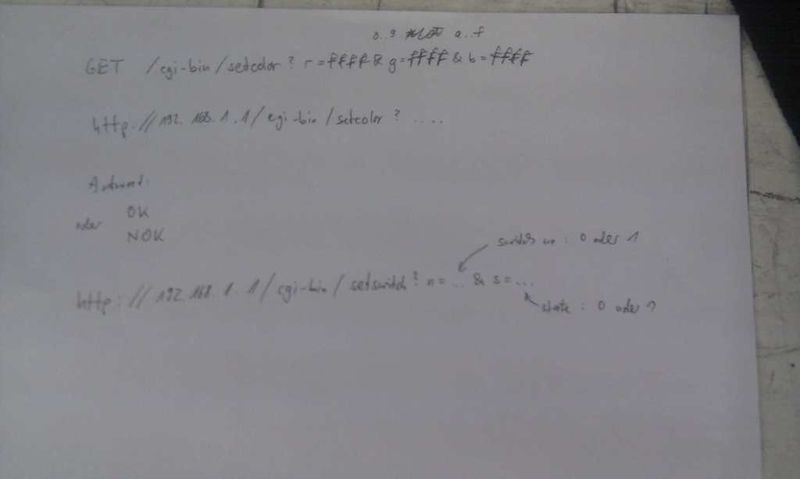 0..9 a..f
GET /cgi-bin/setcolor? r=ffff & g=ffff & b=ffff
http://192.168.1.1/cgi-bin/setcolor? ....
Antwort:
OK
oder
NOK
switch no: 0 oder 1
http://192.168.1.1/cgi-bin/setswitch? n=.. & s=...
state: 0 oder 1